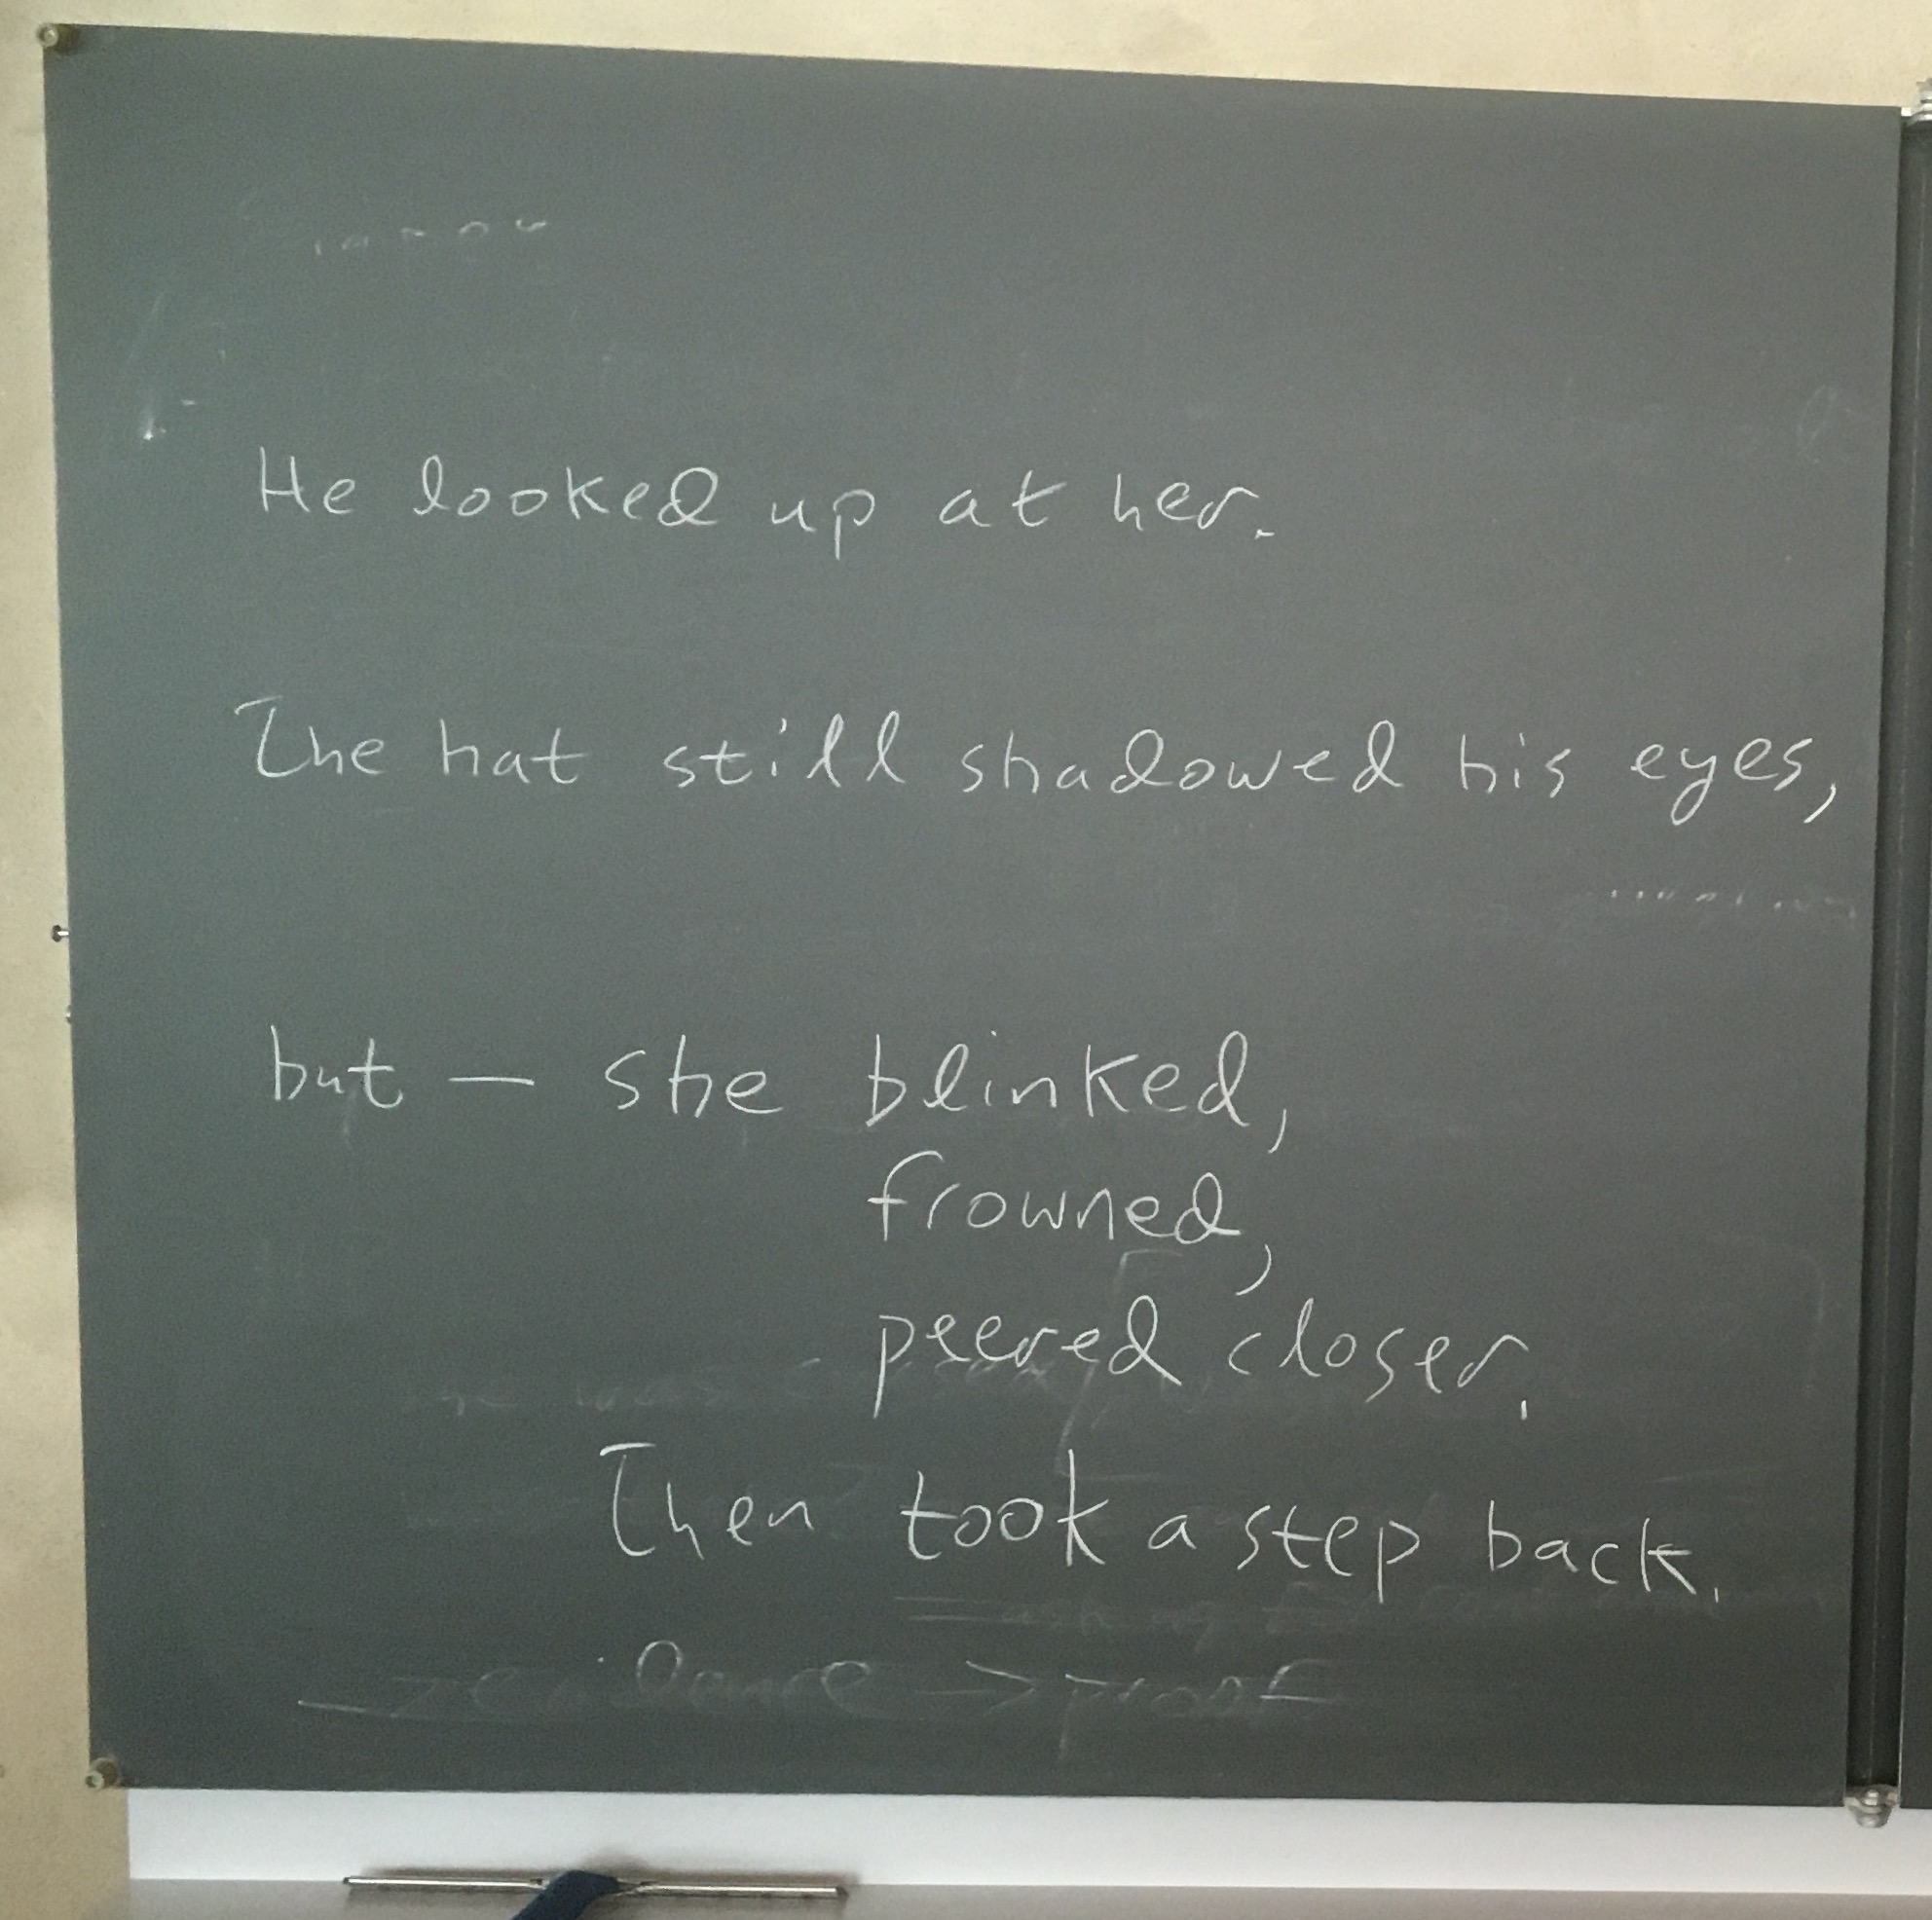 He looked up at her.
The hat still shadowed his eyes,
but — she blinked,
frowned,
peered closer.
Then took a step back.
→ evidence → proof